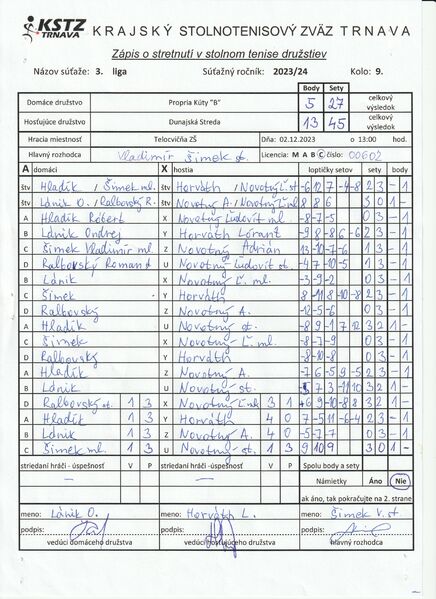 KSTZ TRNAVA KRAJSKÝ STOLNOTENISOVÝ ZVÄZ TRNAVA
Zápis o stretnutí v stolnom tenise družstiev
Názov súťaže: 3. liga Súťažný ročník: 2023/24 Kolo: 9.
Body Sety
Domáce družstvo Propria Kúty "B" 5 27 celkový výsledok
Hosťujúce družstvo Dunajská Streda 13 45 celkový výsledok
Hracia miestnosť Telocvičňa ZŠ Dňa: 02.12.2023 o 13:00 hod.
Hlavný rozhodca Vladimír Šimek st. Licencia: M A B C číslo: 00602
A domáci X hostia loptičky setov sety body
štv Hladík / Šimek ml. štv Horváth / Novotný Ľ. st -6 12 7 -9 -8 2 3 - 1
štv Lánik O. / Ralbovský R. štv Novotný A. / Novotný Ľ. ml 8 8 6 3 0 1 -
A Hladík Róbert X Novotný Ľudovít ml. -8 -7 -5 0 3 - 1
B Lánik Ondrej Y Horváth Lorant -9 8 -8 6 -6 2 3 - 1
C Šimek Vladimír ml. Z Novotný Adrián -13 -10 -7 -6 1 3 - 1
D Ralbovský Roman st U Novotný Ľudovít st. -4 7 -10 -5 1 3 - 1
B Lánik X Novotný Ľ. ml. -3 -9 -2 0 3 - 1
C Šimek Y Horváth 8 -11 8 -10 -8 2 3 - 1
D Ralbovský Z Novotný A. -12 -5 -6 0 3 - 1
A Hladík U Novotný st. -8 9 -1 7 12 3 2 1 -
C Šimek X Novotný Ľ. ml. -8 -7 -9 0 3 - 1
D Ralbovský Y Horváth -8 -10 -8 0 3 - 1
A Hladík Z Novotný A. -7 6 -5 9 -5 2 3 - 1
B Lánik U Novotný st. 7 3 -11 10 3 2 1 -
D Ralbovský st. 1 3 X Novotný Ľ. ml 3 1 9 -10 -8 3 2 1 -
A Hladík 1 3 Y Horváth 4 0 7 -5 -11 -6 -4 2 3 - 1
B Lánik 1 3 Z Novotný A. 4 0 -5 -7 -7 0 3 - 1
C Šimek ml. 1 3 U Novotný st. 1 3 9 10 9 3 0 1 -
striedaní hráči - úspešnosť V P striedaní hráči - úspešnosť V P Spolu body a sety
— — Námietky Áno Nie
ak áno, tak pokračujte na 2. strane
meno: Lánik O. meno: Horváth L. meno: Šimek V. st
podpis: podpis: podpis:
vedúci domáceho družstva vedúci hosťujúceho družstva hlavný rozhodca